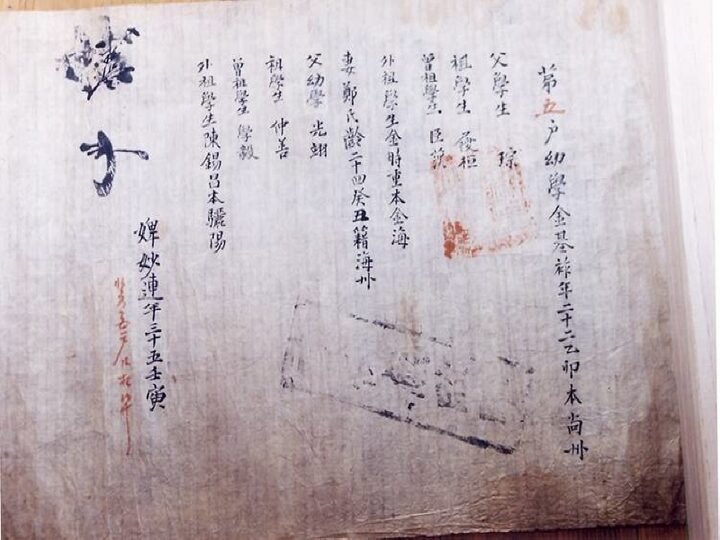 第五戶幼學金基祿年二十二乙卯本尙州
父學生 琮
祖學生
曾祖學生 臣
外祖學生金時重本金海
妻鄭氏齡二十四癸丑籍海州
父幼學 光翊
祖學生 仲善
曾祖學生 學毅
外祖學生陳錫昌本驪陽
婢妙連年三十五壬寅